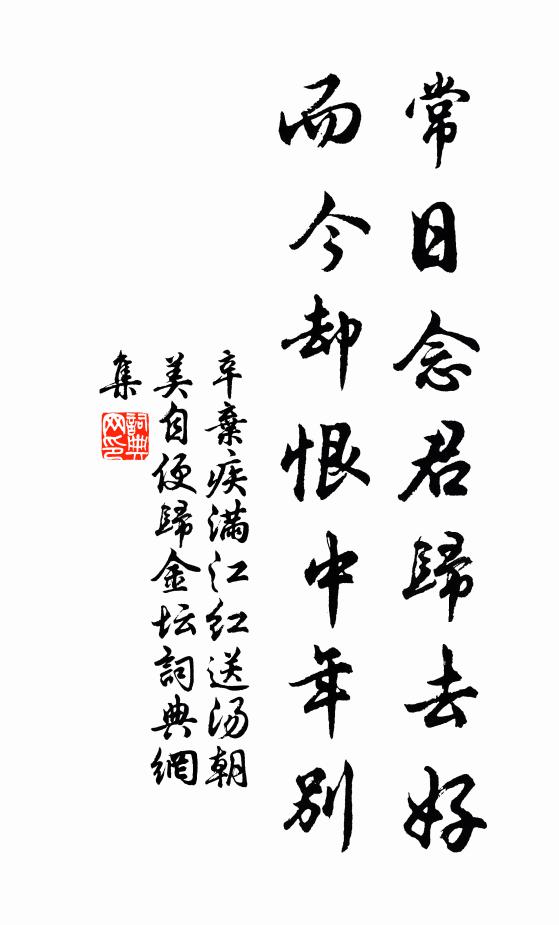 常日念君歸去好
而今却恨中年别
辛棄疾满江红送汤朝
美自便歸金坛詞典網
集
詞典
网印